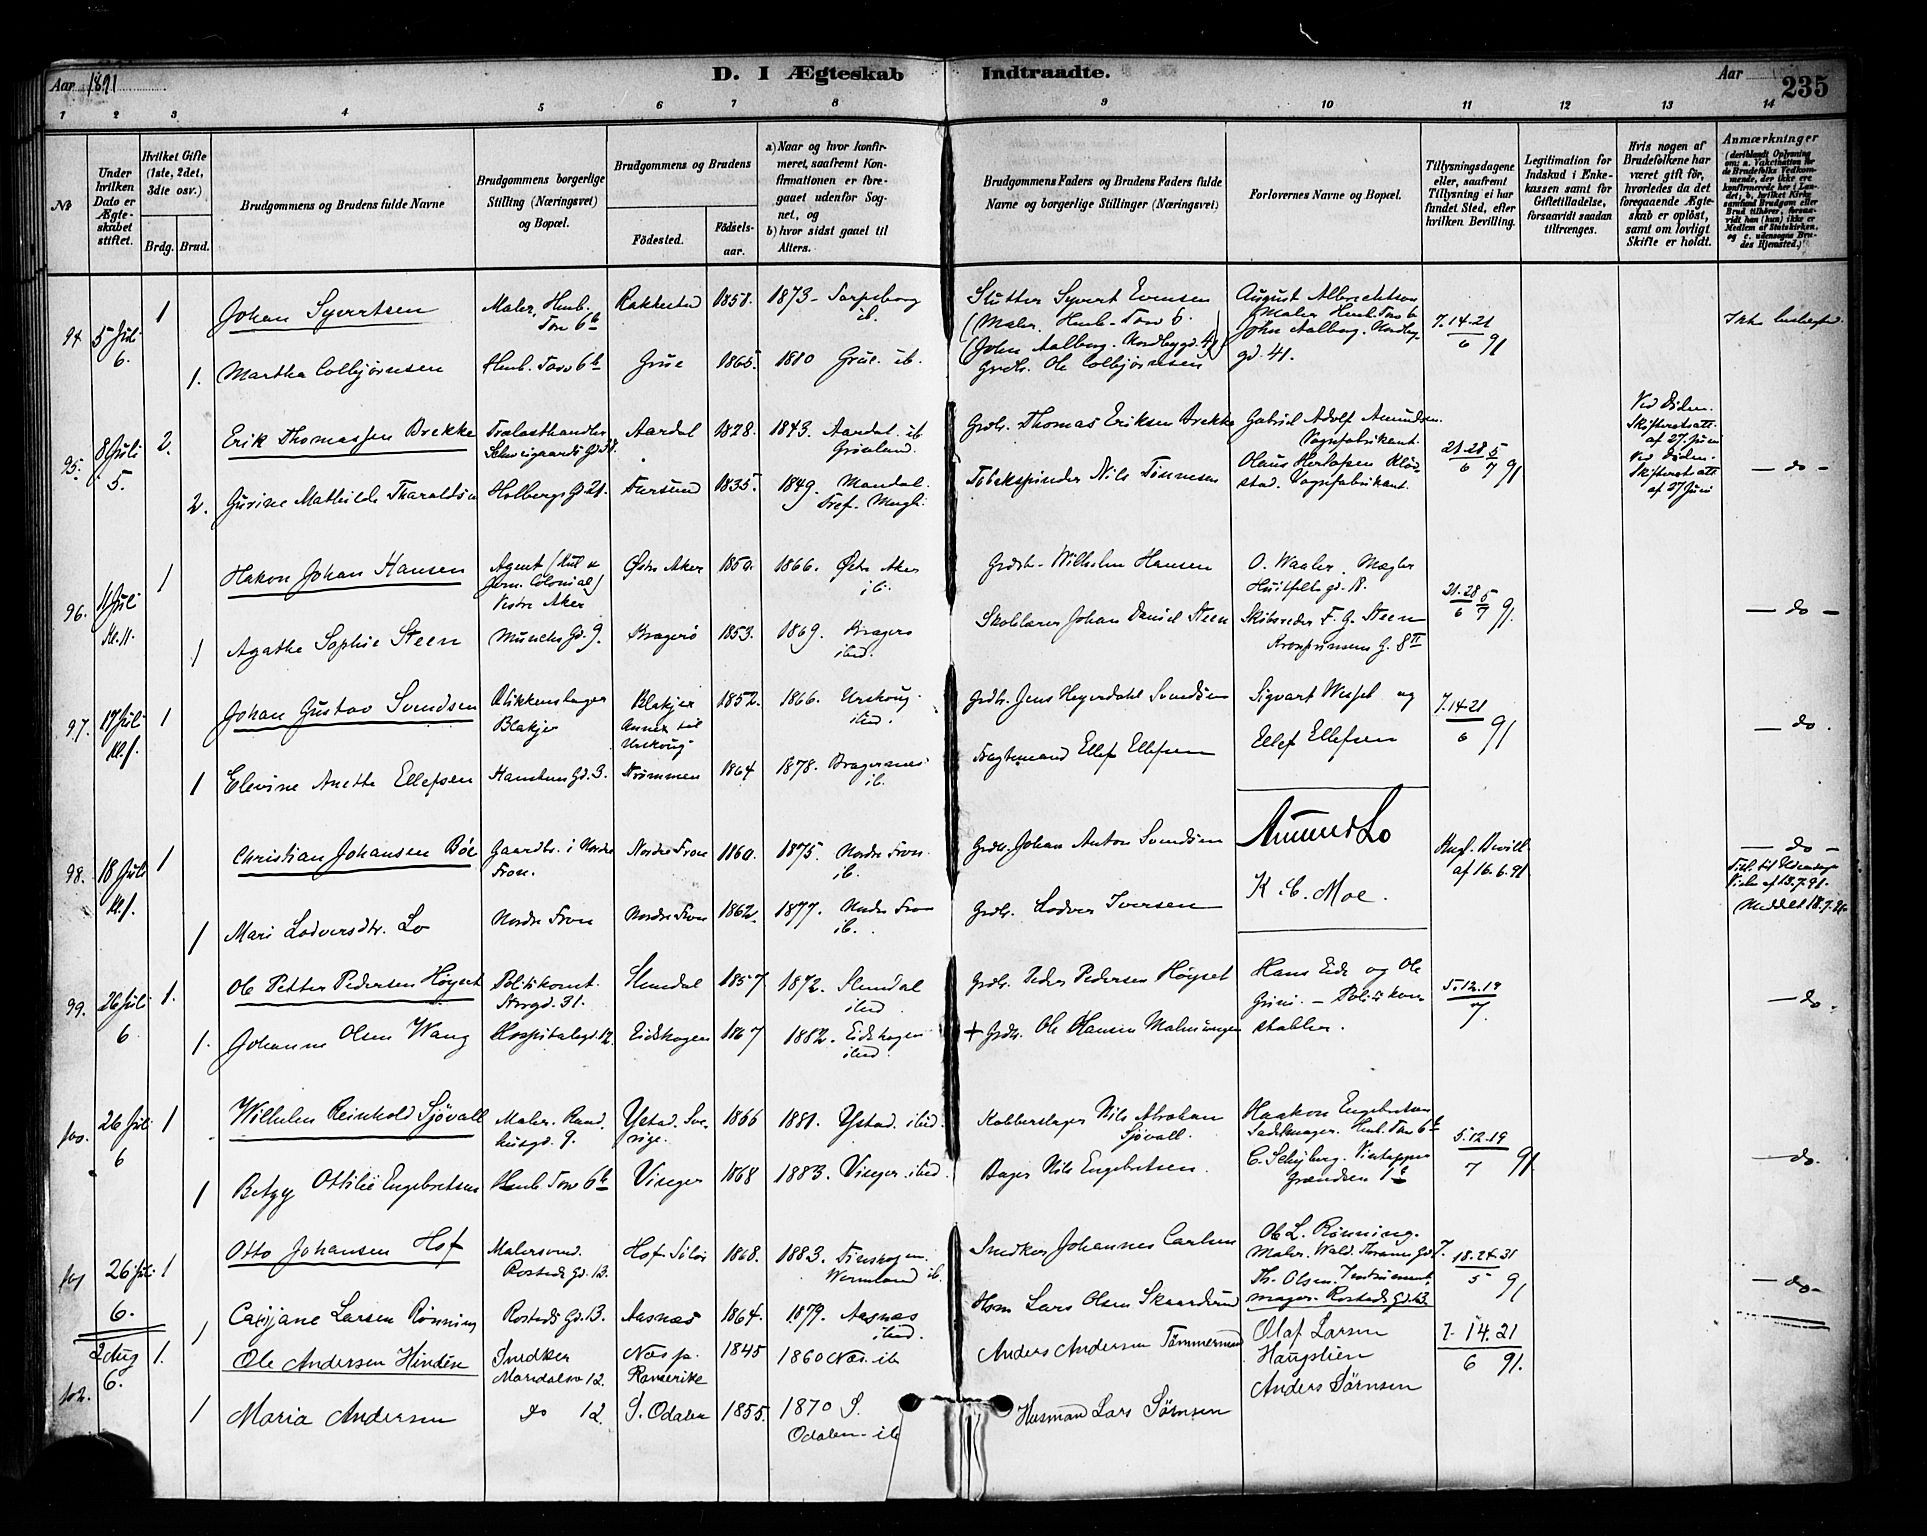 Aar 1891
D. I Ægteskab Indtraadte.
Aar
235
1 2 3 4 5 6 7 8 9 10 11 12 13 14
No
Under hvilken Dato er Ægteskabet stiftet.
Hvilket Gifte (1ste, 2det, 3die osv.)
Brdg. Brud.
Brudgommens og Brudens fulde Navne
Brudgommens borgerlige Stilling (Næringsvei) og Bopæl.
Brudgommens og Brudens
Födested.
Födselsaar.
a) Naar og hvor konfirmeret, saafremt Konfirmationen er foregaaet udenfor Sognet, og
b) hvor sidst gaaet til Alters.
Brudgommens Faders og Brudens Faders fulde Navne og borgerlige Stillinger (Næringsvei)
Forlovernes Navne og Bopæl.
Tillysningsdagene eller, saafremt Tillysning ei har fundet Sted, efter hvilken Bevilling.
Legitimation for Indskud i Enkekassen samt for Giftetilladelse, forsaavidt saadan tiltrænges.
Hvis nogen af Brudefolkene har været gift för, hvorledes da det foregaaende Ægteskab er oplöst, samt om lovligt Skifte er holdt.
Anmærkninger
94 5 Juli 6. 1 Johan Syvertsen Maler, Henb. Torv 6b Rakkestad 1858. 1873 - Sarpsborg ib.
Slutter Syvert Evensen August Albrechtsen 7.14.21
(Maler. Henb. Torv 6. Maler Henb. Torv 6 6 91
(John Aalberg. Nordbygd. 41) John Aalberg. Nordbygd. 41.
1. Martha Colbjørnsen Henb. Torv 6b Grue 1865. 1880 Grue. ib. Grdb. Ole Colbjørnsen
95. 8 Juli 5. 2. Erik Thomassen Brekke Trælasthandler Schweigaards Gd. Aardal 1828. 1843. Aardal. ib. Grønland.
Grdb. Thomas Eriksen Brekke Gabriel Adolf Amundsen. Vognfabrikant. 21.28 5
6 7 91
Ved Døden. Skifteretsatt. af 27. Juni
2. Gurine Mathilde Tharaldsen Holbergs Gd. 21. Farsund 1835. 1849. Mandal.
Tobakspinder Nils Tønnesen Vognfabrikant.
Ved Døden. Skifteretsatt af 27 Juni
- do -
96. 11 Juli Kl. 11. 1 Hakon Johan Hansen Agent (Kul & Jern. Colonial) Vestre Aker Østre Aker 1850. 1866. Østr. Aker ib.
Wilhelm Hansen O. Waaler. Mægler Huitfeldtsgd. 18. 21.28 5
6 7 91.
- do -
1 Agathe Sophie Steen Munchs Gd. 9. Kragerø 1853. 1869. Kragerø ibid.
Skolelærer Johan Daniel Steen Skibsreder F. G. Steen
Kronprinsens G. 8 II
97. 17 Juli Kl. 1. 1 Johan Gustav Svendsen Blikkenslager Blakjer Blakjer Annex til Urskoug 1852. 1866. Urskoug. ibid.
Grdb. Jens Heyerdahl Svendsen Sigvart Wessel og 7.14.21
6 91
- do.
1 Elevine Anette Ellefsen 3. Strømmen 1864 1878. Bragernes ib.
Fragtemand Ellef Ellefsen Ellef Ellefsen
98. 18 Juli Kl. 1. 1 Christian Johansen Böe Gaardbr. i Nordre Fron. Nordre Fron 1860. 1875. Nordre Fron. ib.
Grdb. Johan Anton Svendsen Amund Lo Kngl. Bevill. af 16.6.91
- do -
Meddelt 18.7.91
1 Mari Lodversdtr. Lo Nordre Fron Nordre Fron 1862. 1877. Nordre Fron ib.
Grdb. Lodver Iversen K. C. Moe.
99. 26 Juli 6 1. Ole Petter Pedersen Höyset Politikonst. 31. Slemdal 1857 1872. Slemdal ibid.
Grdb. Peder Pedersen Höyset Hans Eide og Ole Grini. - Politikonstabler. 5.12.19
7.
- do -
1. Johanne Olsen Wang Hospitalsgd. 12. Eidskogen 1867 1882. Eidskogen ibid.
+ Grdb. Ole Hansen
100. 26 Juli 6 1 Wilhelm Reinhold Sjövall Maler. Raadhusgd. 9. Ystad. Sverige. 1866 1881. Ystad. ibid.
Kobberslager Nils Abraham Sjövall. Haakon Engebretsen Sadelmager. Henb. Torv 6b 5.12.19
7 91.
- do.
1 Betzy Ottilie Engebretsen Henb. Torv 6b Vinger 1868 1883. Vinger. ibid.
Bager Nils Engebretsen. C. Schiberg. Vintapper Grændsen 1
101 26 Juli 6. 1 Otto Johansen Hof Malersvend. Rosteds Gd. 13. Hof. Solør 1868. 1883. Finskogen. Wermland ib.
Snedker Johannes Carlsen Ole L. Rönning. Maler. Wald. Thranes Gd 7. 18.24.31
5 91
- do -
1 Larsen Rönning Rosteds Gd. 13. Aasnæs 1864. 1879. Aasnæs ibid.
Hsm Lars Olsen Skaardrud Th. Olsen. Instrumentmager. Rosteds Gd. 13.
102. 2 Aug 6. 1. Ole Andersen Hinden Snedker Maridalsv 12. Næs p. Romerike 1845 1860 Næs. ib
Anders Andersen Tømmermand Olaf Larsen Haugstien 7. 14. 21
6 91.
1 Maria Andersen do 12. S. Odalen 1855. 1870 S. Odalen - ib
Husmand Lars Sørnsen Anders Sørnsen